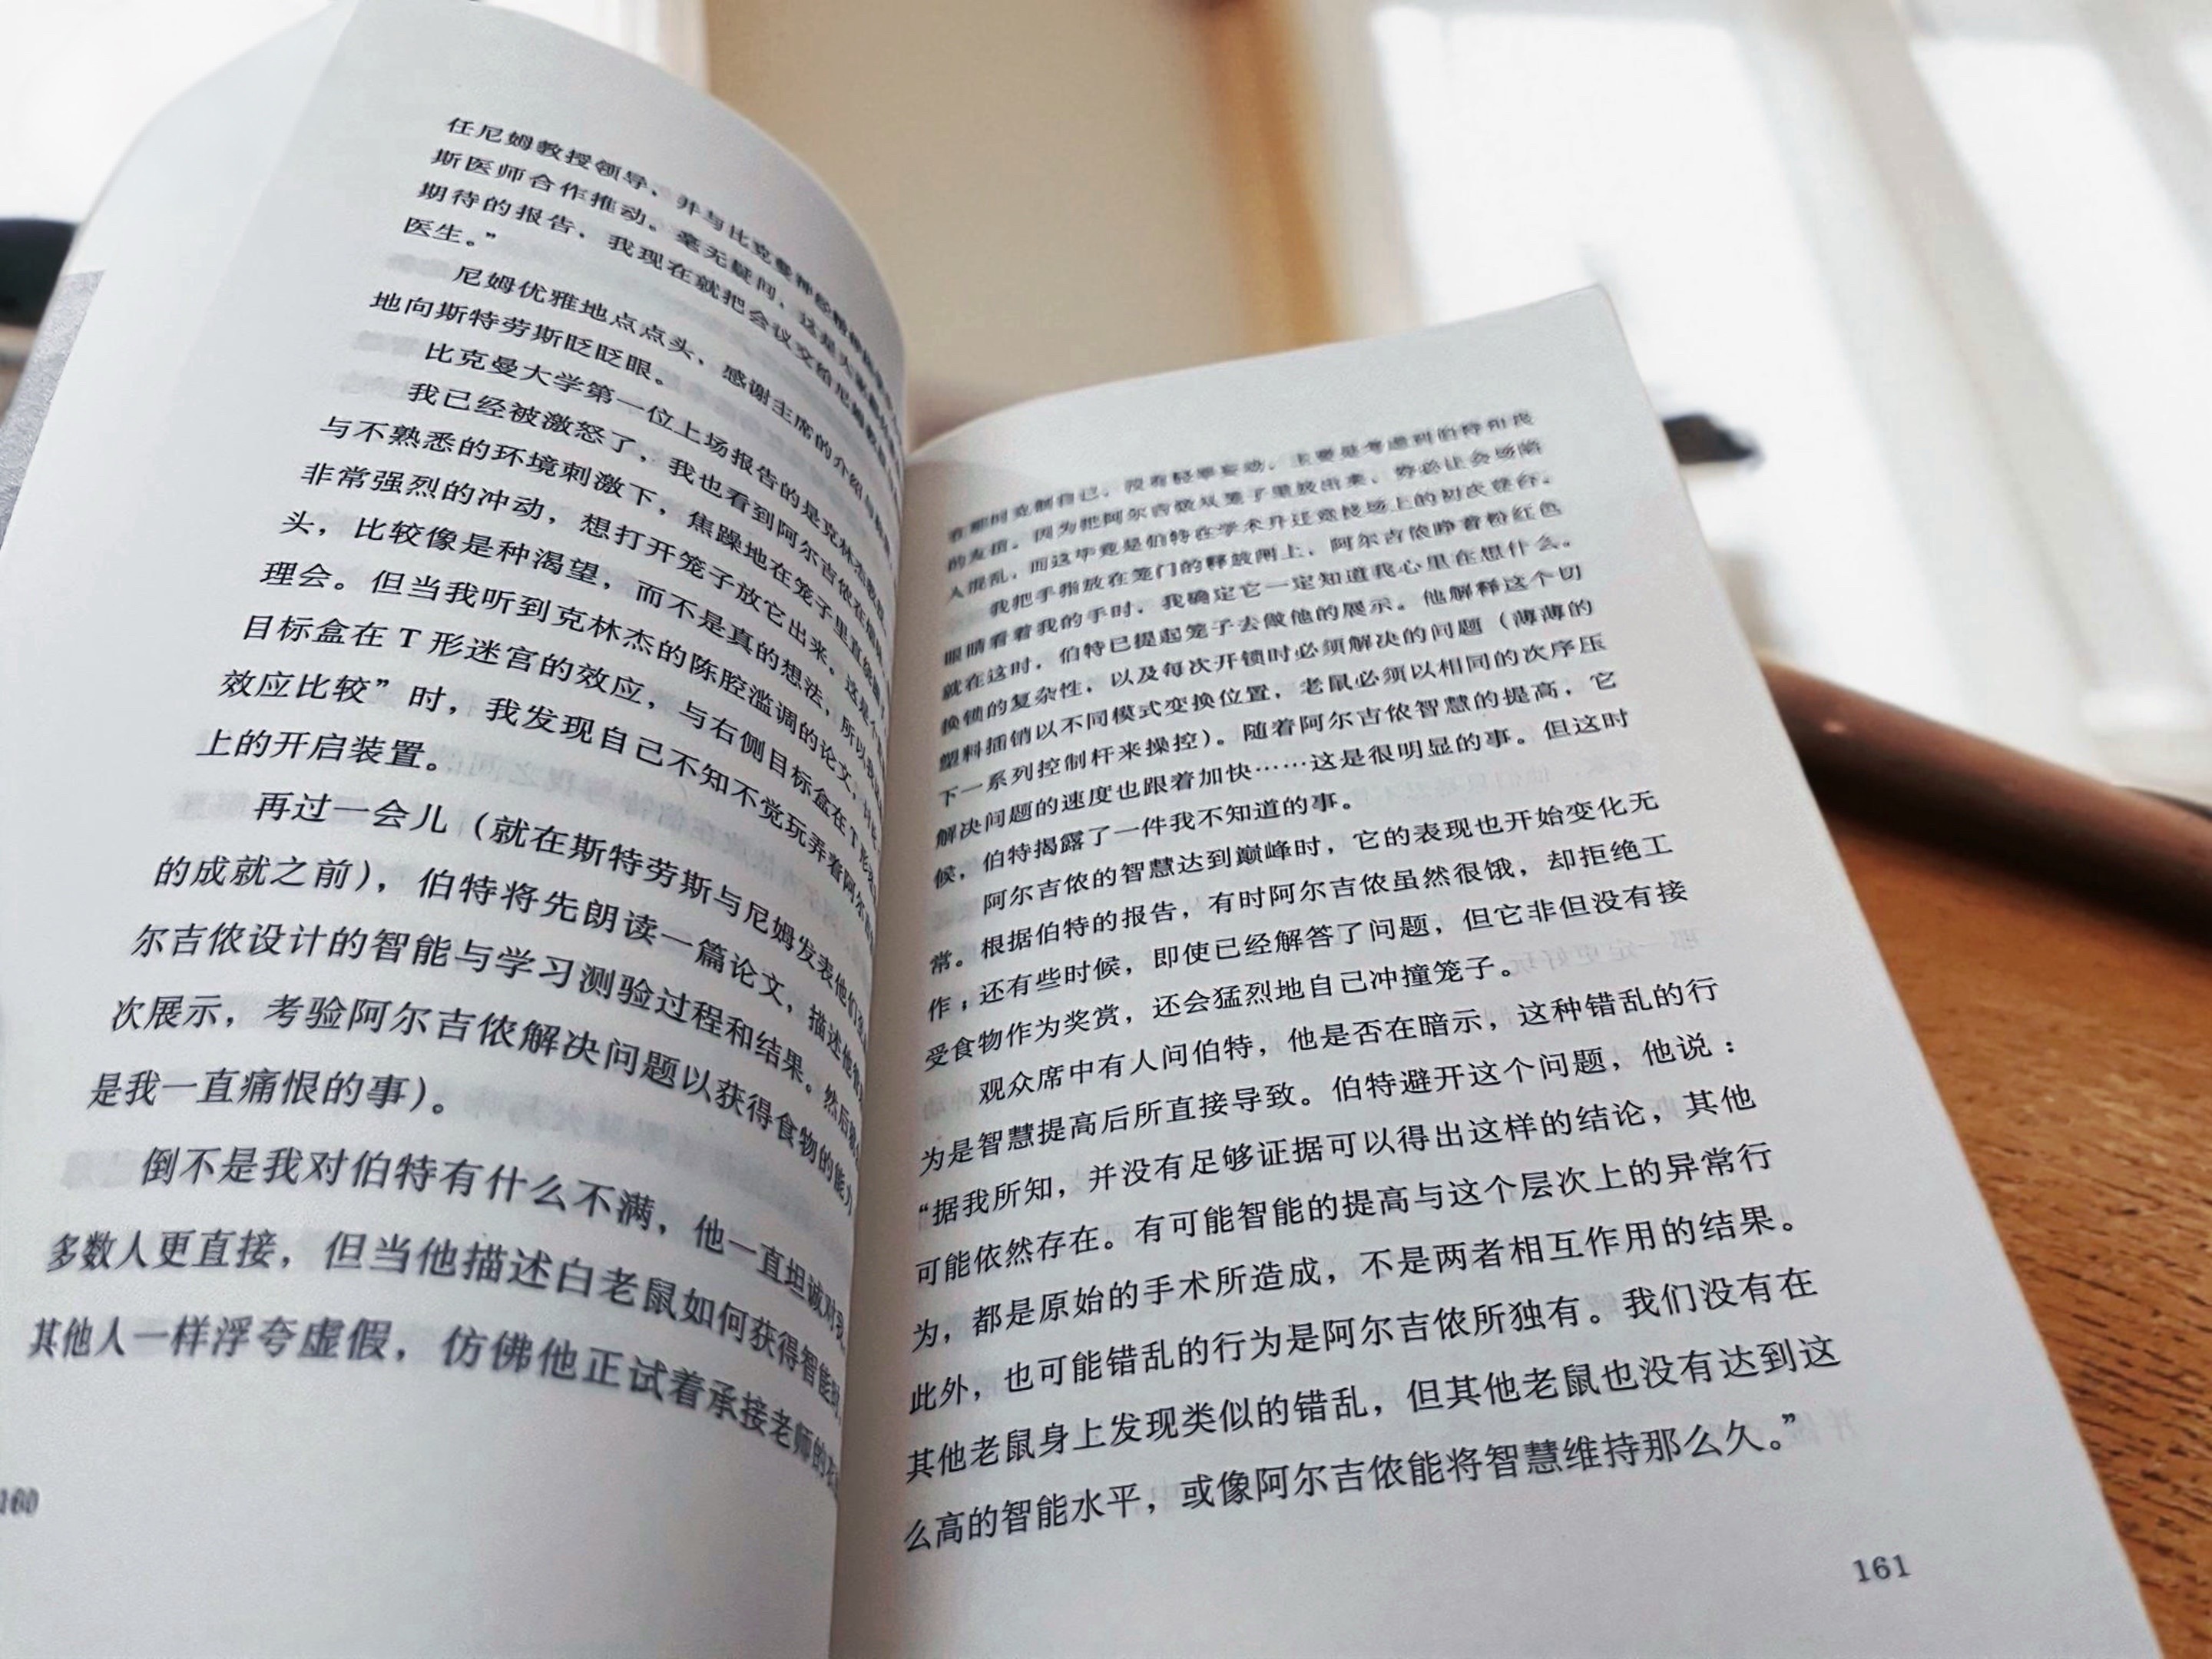 任尼姆教授领导，并与比克曼
斯医师合作推动。毫无疑问，这是大家
期待的报告，我现在就把会议交给尼姆教
医生。”
尼姆优雅地点点头，感谢主席的介绍
地向斯特劳斯眨眨眼。
比克曼大学第一位上场报告的是克林杰教授。
我已经被激怒了，我也看到阿尔吉侬在
与不熟悉的环境刺激下，焦躁地在笼子里直
非常强烈的冲动，想打开笼子放它出来。这是个
头，比较像是种渴望，而不是真的想法，所以我
理会。但当我听到克林杰的陈腔滥调的论文，
目标盒在 T 形迷宫的效应，与右侧目标盒在T形
效应比较”时，我发现自己不知不觉玩弄着阿尔吉
上的开启装置。
再过一会儿（就在斯特劳斯与尼姆发表他们
的成就之前），伯特将先朗读一篇论文，描述他
尔吉侬设计的智能与学习测验过程和结果。然后
次展示，考验阿尔吉侬解决问题以获得食物的能力
是我一直痛恨的事）。
倒不是我对伯特有什么不满，他一直坦诚对我
多数人更直接，但当他描述白老鼠如何获得智能时
其他人一样浮夸虚假，仿佛他正试着承接老师的
160
克制自己，没有轻举妄动，主要是考虑到伯特和我
的友谊。因为把阿尔吉侬从笼子里放出来，势必让会场陷
入混乱，而这毕竟是伯特在学术升迁竞技场上的初次登台。
我把手指放在笼门的释放闸上，阿尔吉侬睁着粉红色
眼睛看着我的手时，我确定它一定知道我心里在想什么。
就在这时，伯特已提起笼子去做他的展示。他解释这个切
换锁的复杂性，以及每次开锁时必须解决的问题（薄薄的
塑料插销以不同模式变换位置，老鼠必须以相同的次序压
下一系列控制杆来操控）。随着阿尔吉侬智慧的提高，它
解决问题的速度也跟着加快……这是很明显的事。但这时
候，伯特揭露了一件我不知道的事。
阿尔吉侬的智慧达到巅峰时，它的表现也开始变化无
常。根据伯特的报告，有时阿尔吉侬虽然很饿，却拒绝工
作；还有些时候，即使已经解答了问题，但它非但没有接
受食物作为奖赏，还会猛烈地自己冲撞笼子。
观众席中有人问伯特，他是否在暗示，这种错乱的行
为是智慧提高后所直接导致。伯特避开这个问题，他说：
“据我所知，并没有足够证据可以得出这样的结论，其他
可能依然存在。有可能智能的提高与这个层次上的异常行
为，都是原始的手术所造成，不是两者相互作用的结果。
此外，也可能错乱的行为是阿尔吉侬所独有。我们没有在
其他老鼠身上发现类似的错乱，但其他老鼠也没有达到这
么高的智能水平，或像阿尔吉侬能将智慧维持那么久。”
161